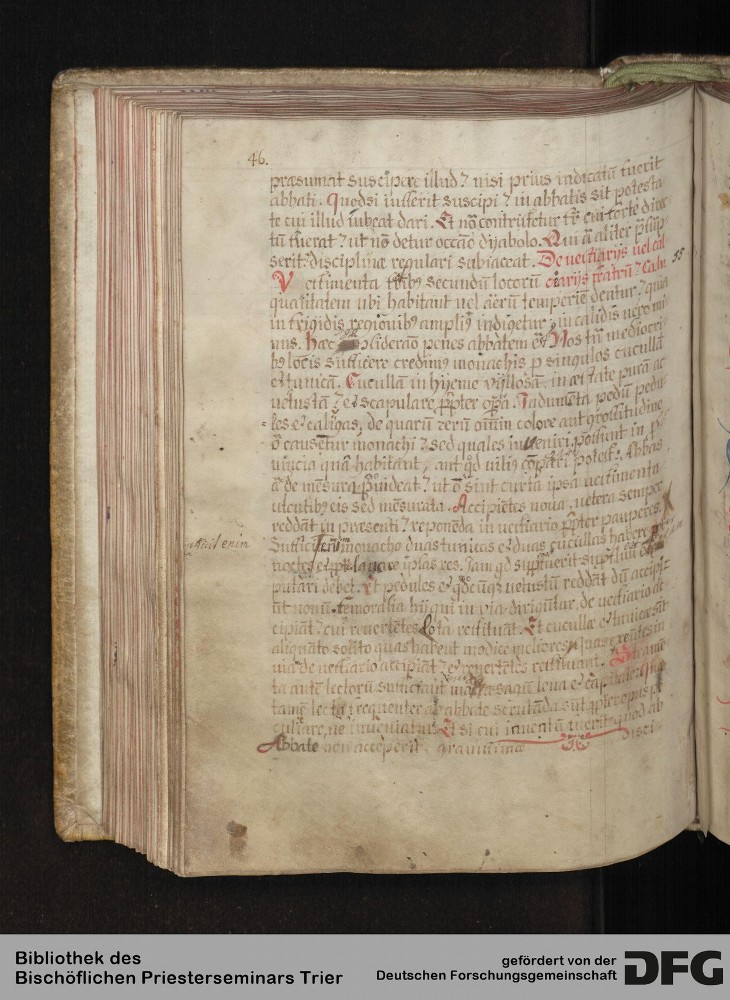 46.
præsumat suscipere illud ⁊ nisi prius indicatā fuerit
abbati. Quodsi iusserit suscipi ⁊ in abbatis sit potesta
te cui illud iubeat dari. Et nō contristetur fr̄ cui forte direc
tū fuerat ⁊ ut nō detur occāō dyabolo. Qui ā aliter p̄sūp
serit: disciplinæ regulari subiaceat. De vestiarijs uel cal
55
Vestimenta frībꝰ secundū locorū ciarijs fratrū ⁊ Ca. lv
qualitatem ubi habitant uel aerū temperiē dentur ⁊ quia
in frigidis regionibꝰ ampliꝰ indigetur, in calidis uero mi
nus. Hæc consideraō penes abbatem ē. Nos tn̄ mediocri
bꝰ locis sufficere credimꝰ monachis p singulos cucullā
et tunicā. Cucullā in hyeme villosā, in æstate purā ac
uetustā ⁊ et scapulare p̄pter opera. Indumēta pedū pedu
les et caligas, de quarū rerū omnium colore aut grossitudine
ō causentur monachi ⁊ sed quales inueniri possunt in p
uincia qua habitant, aut qd̄ uiliꝰ cōparari potest. Abbas
ā de mēsura p̄uideat ⁊ ut ō sint curta ipsa uestimenta
utentibꝰ eis sed mēsurata. Accipiētes noua, uetera semper
reddāt in præsenti ⁊ reponēda in uestiario p̄pter pauperes.
Sufficit enim monacho duas tunicas et duas cucullas habere
sufficit enim
noctes et lauare ipsas res. Iam qd̄ sup̄fuerit superfluū
putari debet. Et pedules et qd̄cūqꝫ uetustū reddāt dū accipi
ūt nouū. Femoralia hij qui in via dirigūtur, de uestiario ac
cipiāt ⁊ cui reuertētes lota restituāt. Et cucullæ et tunicæ sīt
aliquāto solito quas habent modice meliores, quas exeūtes in
uia de uestiario accipiāt ⁊ et reuertētes restituant. Stramē
ta autē lectorū sufficiant matta sagū lena et capitale. Quæ
tamē lecta frequenter ab abbate scrutāda sūt p̄pter opus pe
culiare, ne inueniatur. Et si cui inuentū fuerit quod ab
Abbate non acceperit, grauissimæ disci
Bibliothek des
Bischöflichen Priesterseminars Trier
gefördert von der
Deutschen Forschungsgemeinschaft
DFG